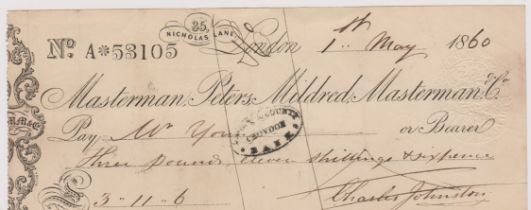 35,
NICHOLAS LANE,
No. A*53105 London 1st May 1860
Masterman, Peters, Mildred, Masterman, & Co.
Pay Mr Young or Bearer
COUNTY
CROYDON
BANK
Three pounds eleven shillings & sixpence
3-11-6 Charles Johnston